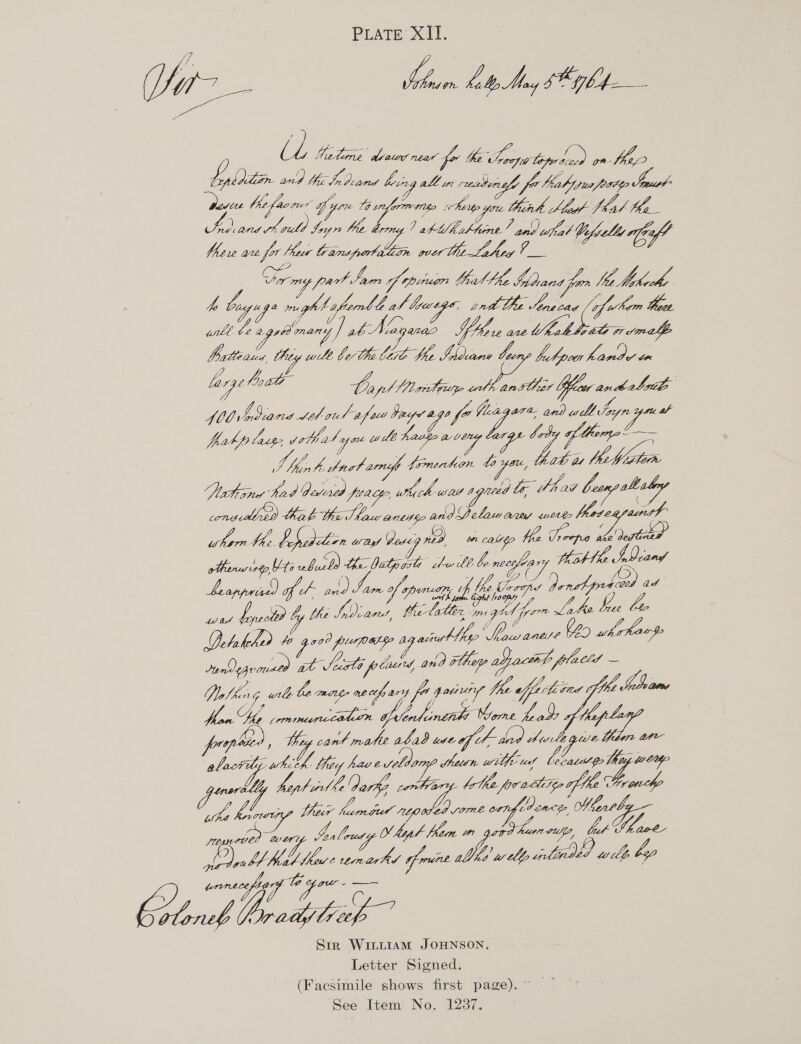 PLATE XII.
Sir
Johnson hall May 5th 1764
As the time draws near for the Troops to proceed on the
Expedition and the Indians being all in readiness for that purpose I must
desire the favour of you to inform me where you think it best that the
Indians should Joyn the Army? at What time? and what Vessells or Craft
there are for their transportation over the Lakes?
For my part I am of opinion that the Indians from the Mohocks
to Cayuga might assemble at Oswego, and the Senecas (of whom there
will be a good many) at Niagara. If there are Whale boats or small
Batteaus, they will be the best the Indians being but poor hands in
large Boats Capt Montour with another Officer and about
100 Indians set out a few days ago for Niagara, and will Joyn you at
that place, so that you will have a very large body of them.
I think it not amiss to mention to you, that as the Western
Nations had desired peace, which was agreed to, it has been all along
considered that the Shawanese and Delawares were those against
whom the Expedition was designed, in case the Troops are destined
otherwise, & to rebuild the Outposts it will be necessary that the Indians
be apprised of it and I am of opinion, if the Troops do not proceed as
with some light troops
was expected by the Indians, the latter, might from Lake Erie be
Detatched to good purpose against the Shawanese &ca who have
rendezvoused at Scioto plains, and other adjacent places —
Nothing will be more necessary for gaining the affections of the Indians
than the communication of Sentiments & some heads of the plan
proposed, they cant make a bad use of it and it will give them an
alacrity which they have seldome shewn with us, because they were
generally kept in the dark, contrary to the practise of the French
who knowing their humour reposed some confidence, & thereby
removed every Jealousy & kept them in good humour, but I have
no doubt that these remarks of mine altho' well intended will be
unnecessary to you. —
Colonel Bradstreet
SIR WILLIAM JOHNSON.
Letter Signed.
(Facsimile shows first page).
See Item No. 1237.